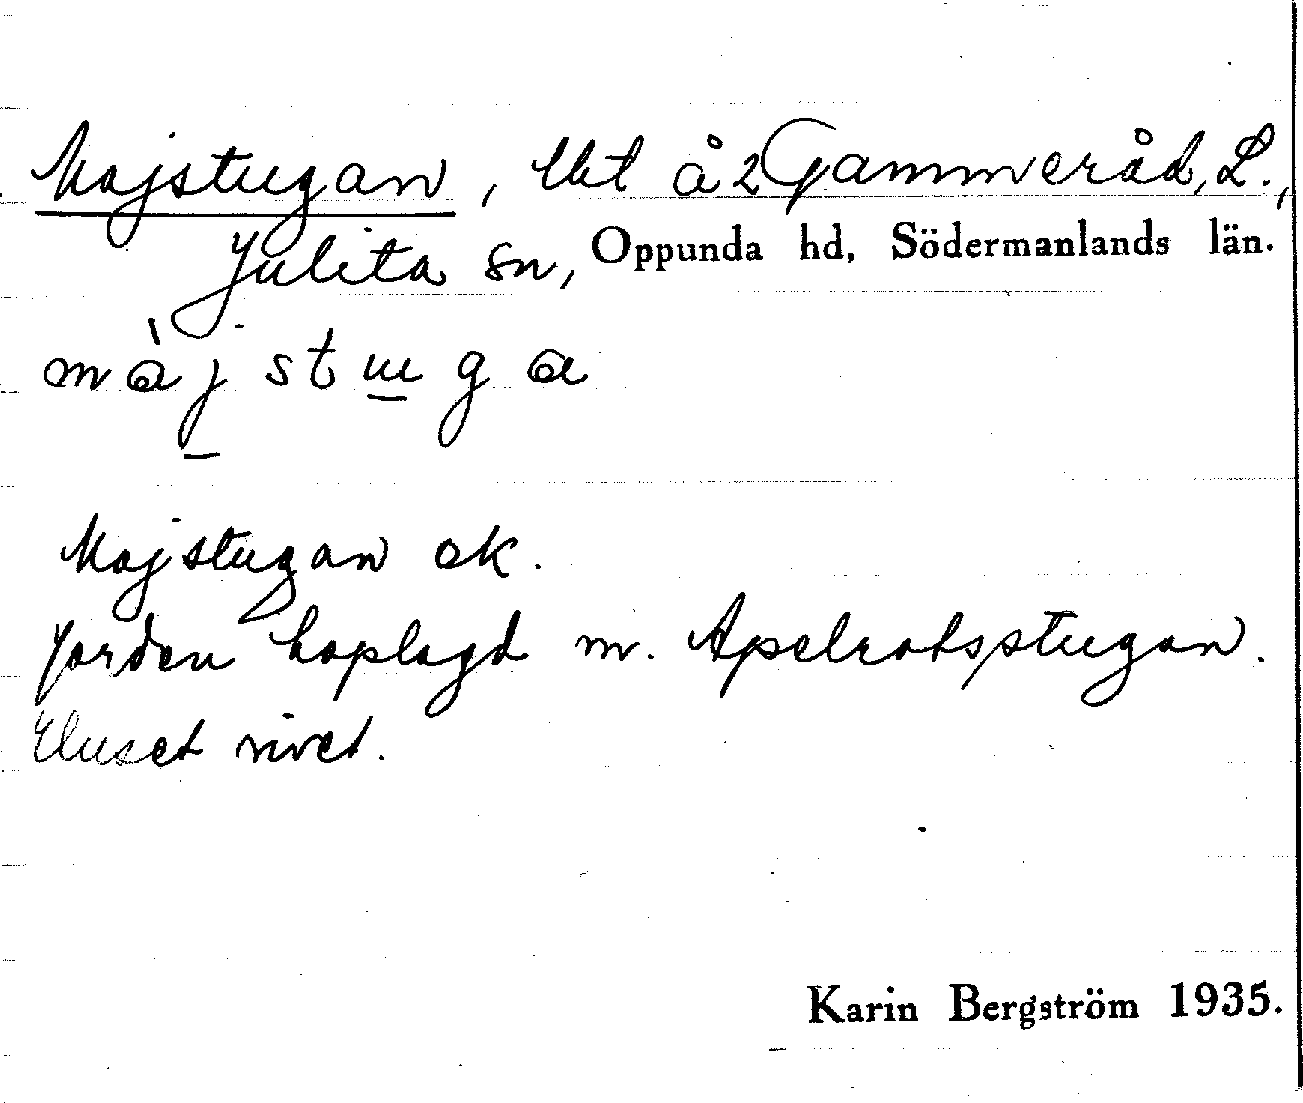 Majstugan, lht å 2 Gammeråd, L.,
Julita sn, Oppunda hd, Södermanlands län.
màj stuga
Majstugan ek.
Jorden hoplagd m. Apelrotsstugan.
Huset rivet.
Karin Bergström 1935.